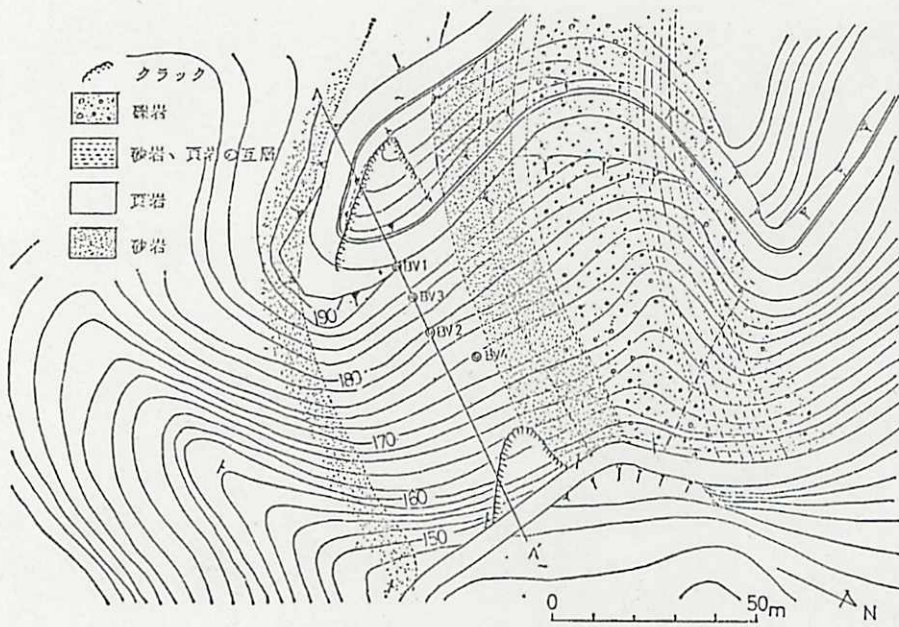 クラック
礫岩
砂岩、頁岩の互層
頁岩
砂岩
A
BV1
BV3
190
BV2
180
170
160
150
A'
0 50m
N